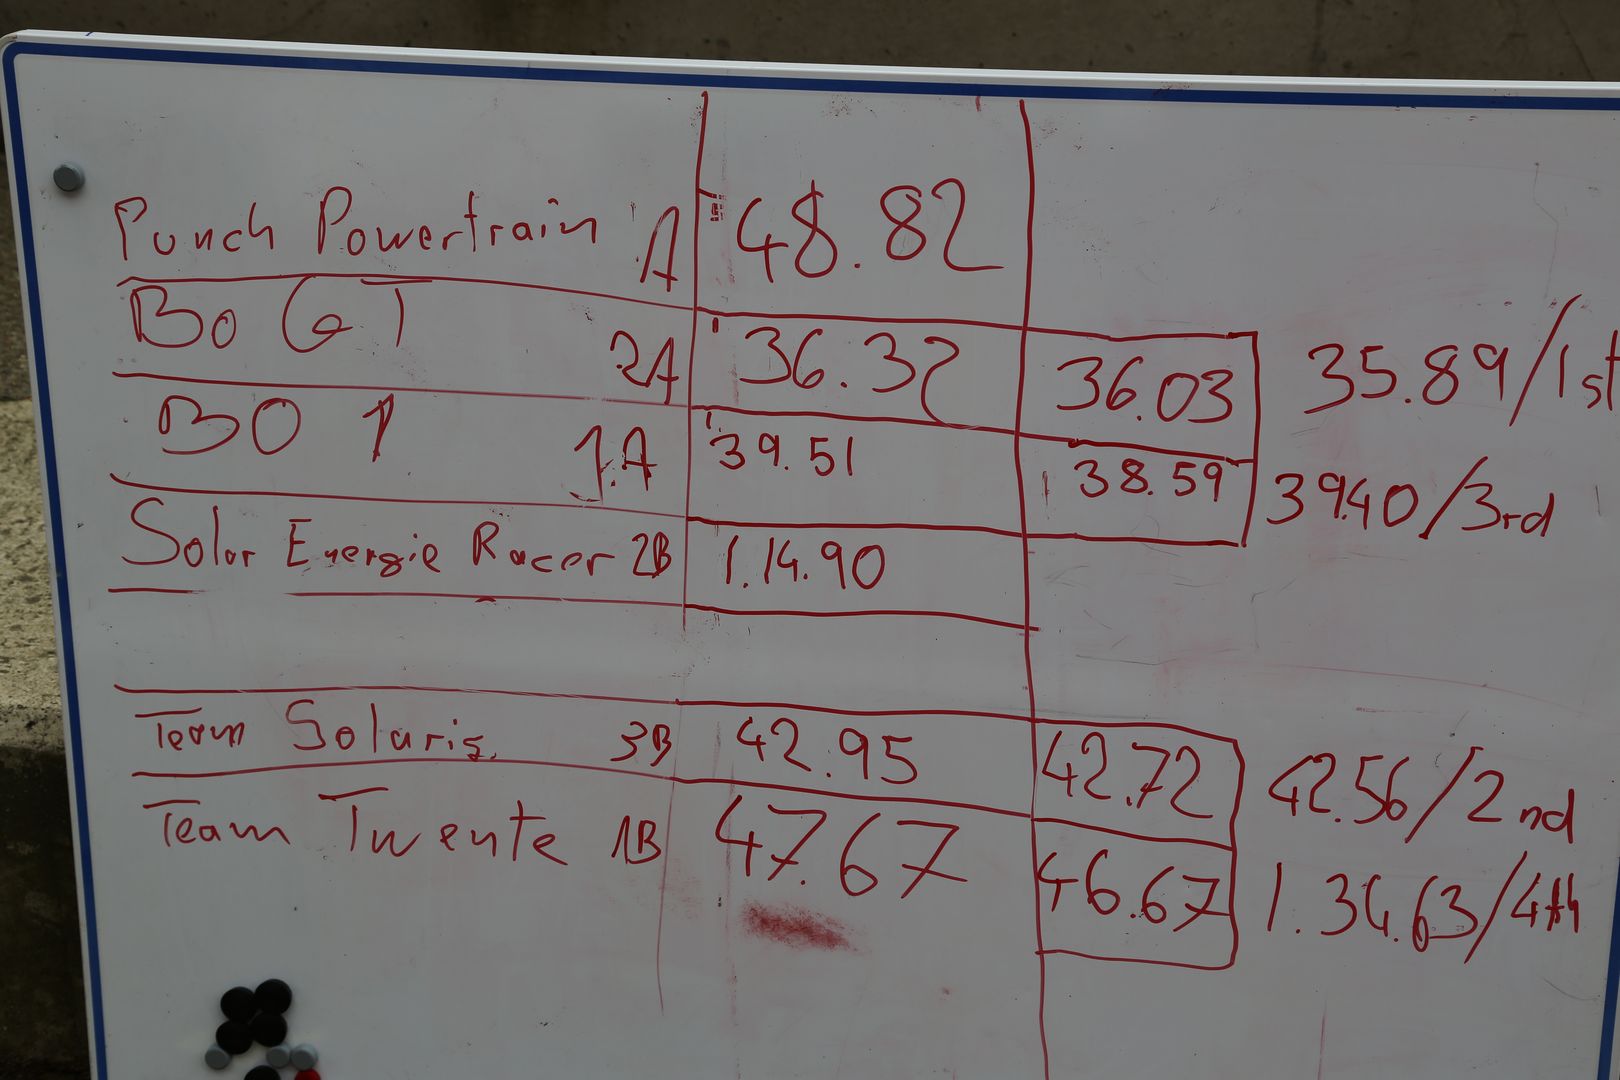 Punch Powertrain A 48.82
Bo GT 2A 36.32 36.03 35.89/1st
BO 1 1.A 39.51 38.59 39.40/3rd
Solar Energie Racer 2B 1.14.90
Team Solaris 3B 42.95 42.72 42.56/2nd
Team Twente 1B 47.67 46.67 1.34.63/4th